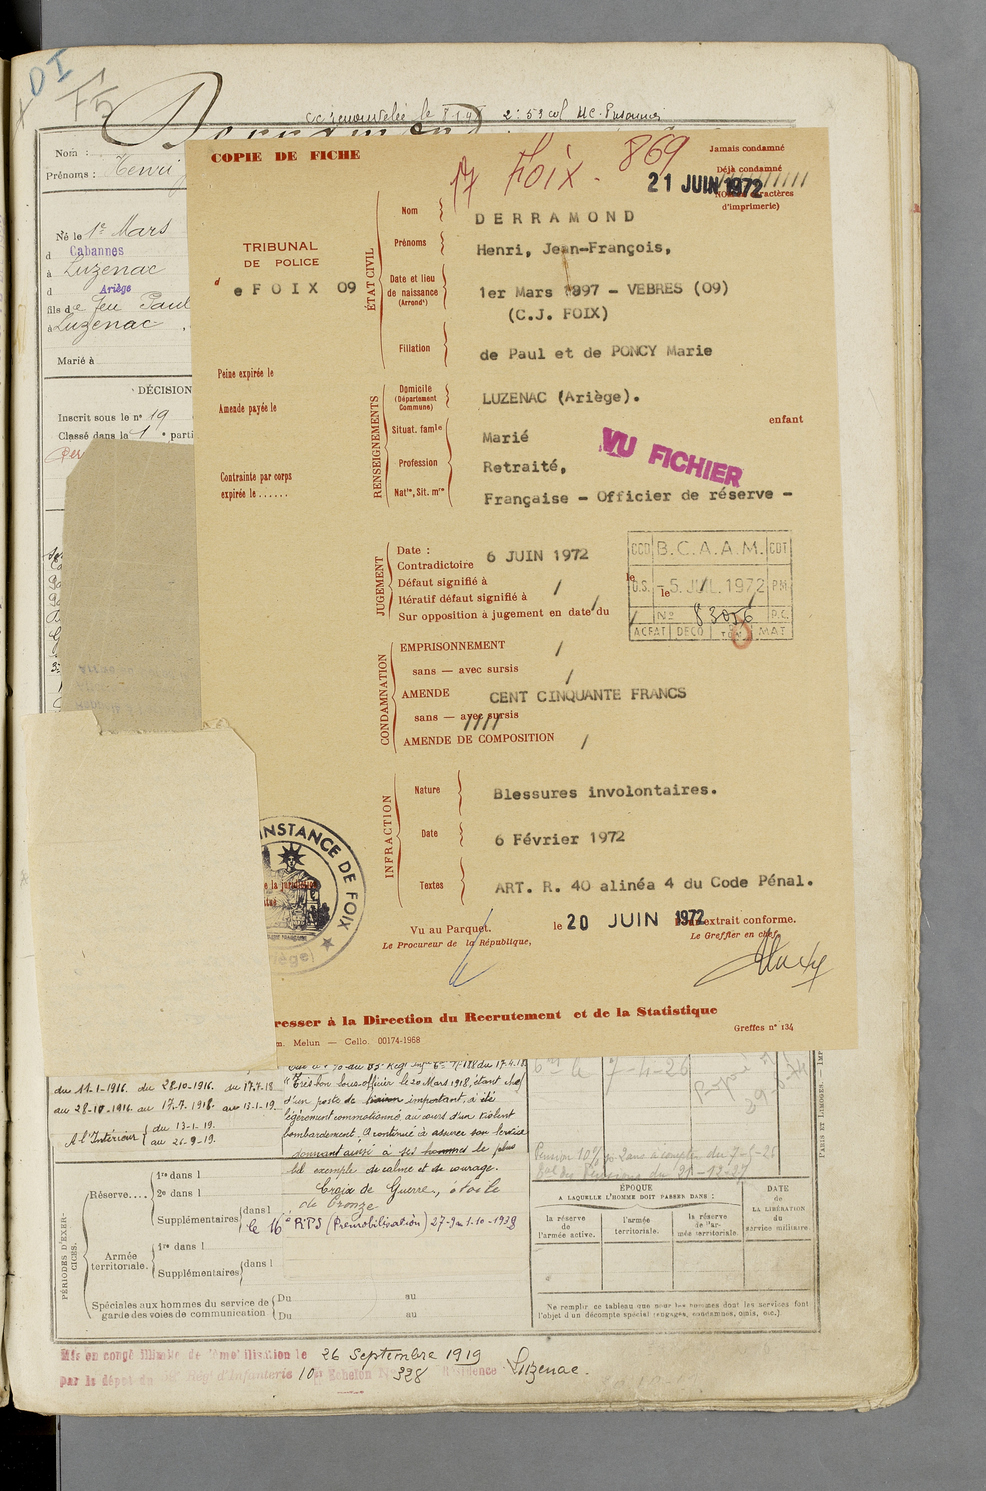 DI
F5
renouvelée le
Nom :
Prénoms : Henri
Né le 1er Mars
d Cabannes
à Luzenac
d Ariège
fils de feu Paul
à Luzenac
Marié à
DÉCISION
Inscrit sous le n° 19
Classé dans la 1e parti
COPIE DE FICHE
17 Foix - 869
Jamais condamné
Déjà condamné
21 JUIN 1972
d'imprimerie)
TRIBUNAL
DE POLICE
de FOIX 09
Peine expirée le
Amende payée le
Contrainte par corps
expirée le ......
ÉTAT CIVIL
Nom
DERRAMOND
Prénoms
Henri, Jean-François,
Date et lieu
de naissance
(Arrondt)
1er Mars 1897 - VEBRES (09)
(C.J. FOIX)
Filiation
de Paul et de PONCY Marie
RENSEIGNEMENTS
Domicile
(Département
Commune)
LUZENAC (Ariège).
enfant
Situat. famle
Marié
VU FICHIER
Profession
Retraité,
Natle, Sit. mre
Française - Officier de réserve -
JUGEMENT
Date :
Contradictoire
6 JUIN 1972
Défaut signifié à /
Itératif défaut signifié à /
Sur opposition à jugement en date du /
le
CCD B.C.A.A.M. CDT
G.S. le -5. JUIL. 1972 P.M.
N° 83056 P.C.
ACFAT DECO MAT
CONDAMNATION
EMPRISONNEMENT /
sans — avec sursis /
AMENDE
CENT CINQUANTE FRANCS
sans — avec sursis
AMENDE DE COMPOSITION /
INFRACTION
Nature
Blessures involontaires.
Date
6 Février 1972
Textes
ART. R. 40 alinéa 4 du Code Pénal.
INSTANCE DE FOIX
Vu au Parquet.
Le Procureur de la République,
le 20 JUIN 1972
extrait conforme.
Le Greffier en chef,
resser à la Direction du Recrutement et de la Statistique
Greffes n° 134
m. Melun — Cello. 00174-1968
du 11-1-1916. du 28.10-1916. du 17.7.18
au 28-10-1916. au 17.7.1918. au 13-1.19
A l'Intérieur du 13-1-19.
au 26-9-19.
"Très bon sous-officier le 20 Mars 1918, étant chef
d'un poste de liaison important, a été
légèrement commotionné au cours d'un violent
bombardement. A continué à assurer son service
donnant ainsi à ses hommes le plus
bel exemple de calme et de courage.
Croix de Guerre, étoile
de bronze
le 7-4-26
Pension 10%
PÉRIODES D'EXER-
CICES.
Réserve....
1re dans l
2e dans l
Supplémentaires dans l
le 16e RTS (Prémobilisation) 27-9 au 1-10-1938
Armée
territoriale.
1re dans l
Supplémentaires dans l
Spéciales aux hommes du service de
garde des voies de communication
Du au
Du au
ÉPOQUE
A LAQUELLE L'HOMME DOIT PASSER DANS :
DATE
DE
LA LIBÉRATION
du
service militaire.
la réserve
de
l'armée active.
l'armée
territoriale.
la réserve
de l'ar-
mée territoriale.
Ne remplir ce tableau que pour les hommes dont les services font
l'objet d'un décompte spécial (engagés, condamnés, omis, etc.)
PARIS ET LIMOGES. —
Mis en congé illimité de démobilisation le 26 Septembre 1919
par le dépôt du Régt d'Infanterie 10e Echelon N° 328 Résidence Luzenac.